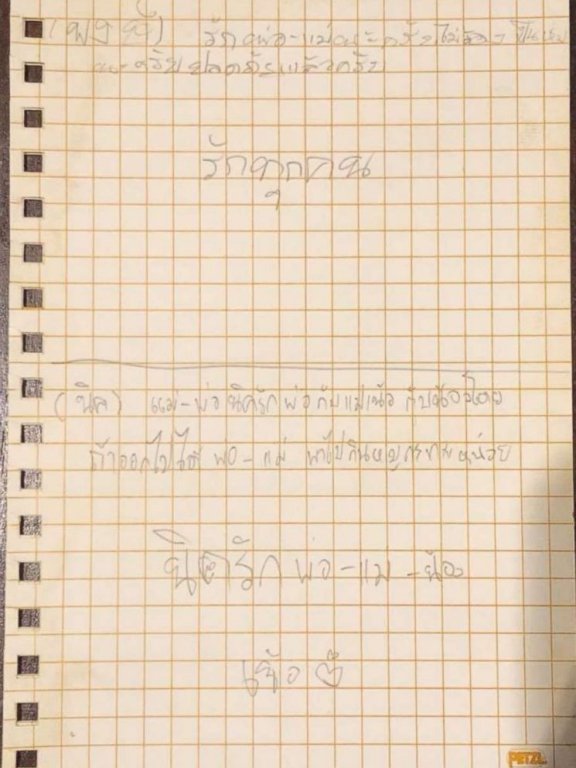 (พงษ์) รักพ่อ-แม่นะครับไม่ต้องเป็นห่วง
นะครับปลอดภัยแล้วครับ
รักทุกคน
(นิค) แม่-พ่อ นิครักพ่อกับแม่
ถ้าออกไปได้ พ่อ-แม่ พาไปกินหมูกระทะหน่อย
นิครักพ่อ-แม่-น้อง
PETZL